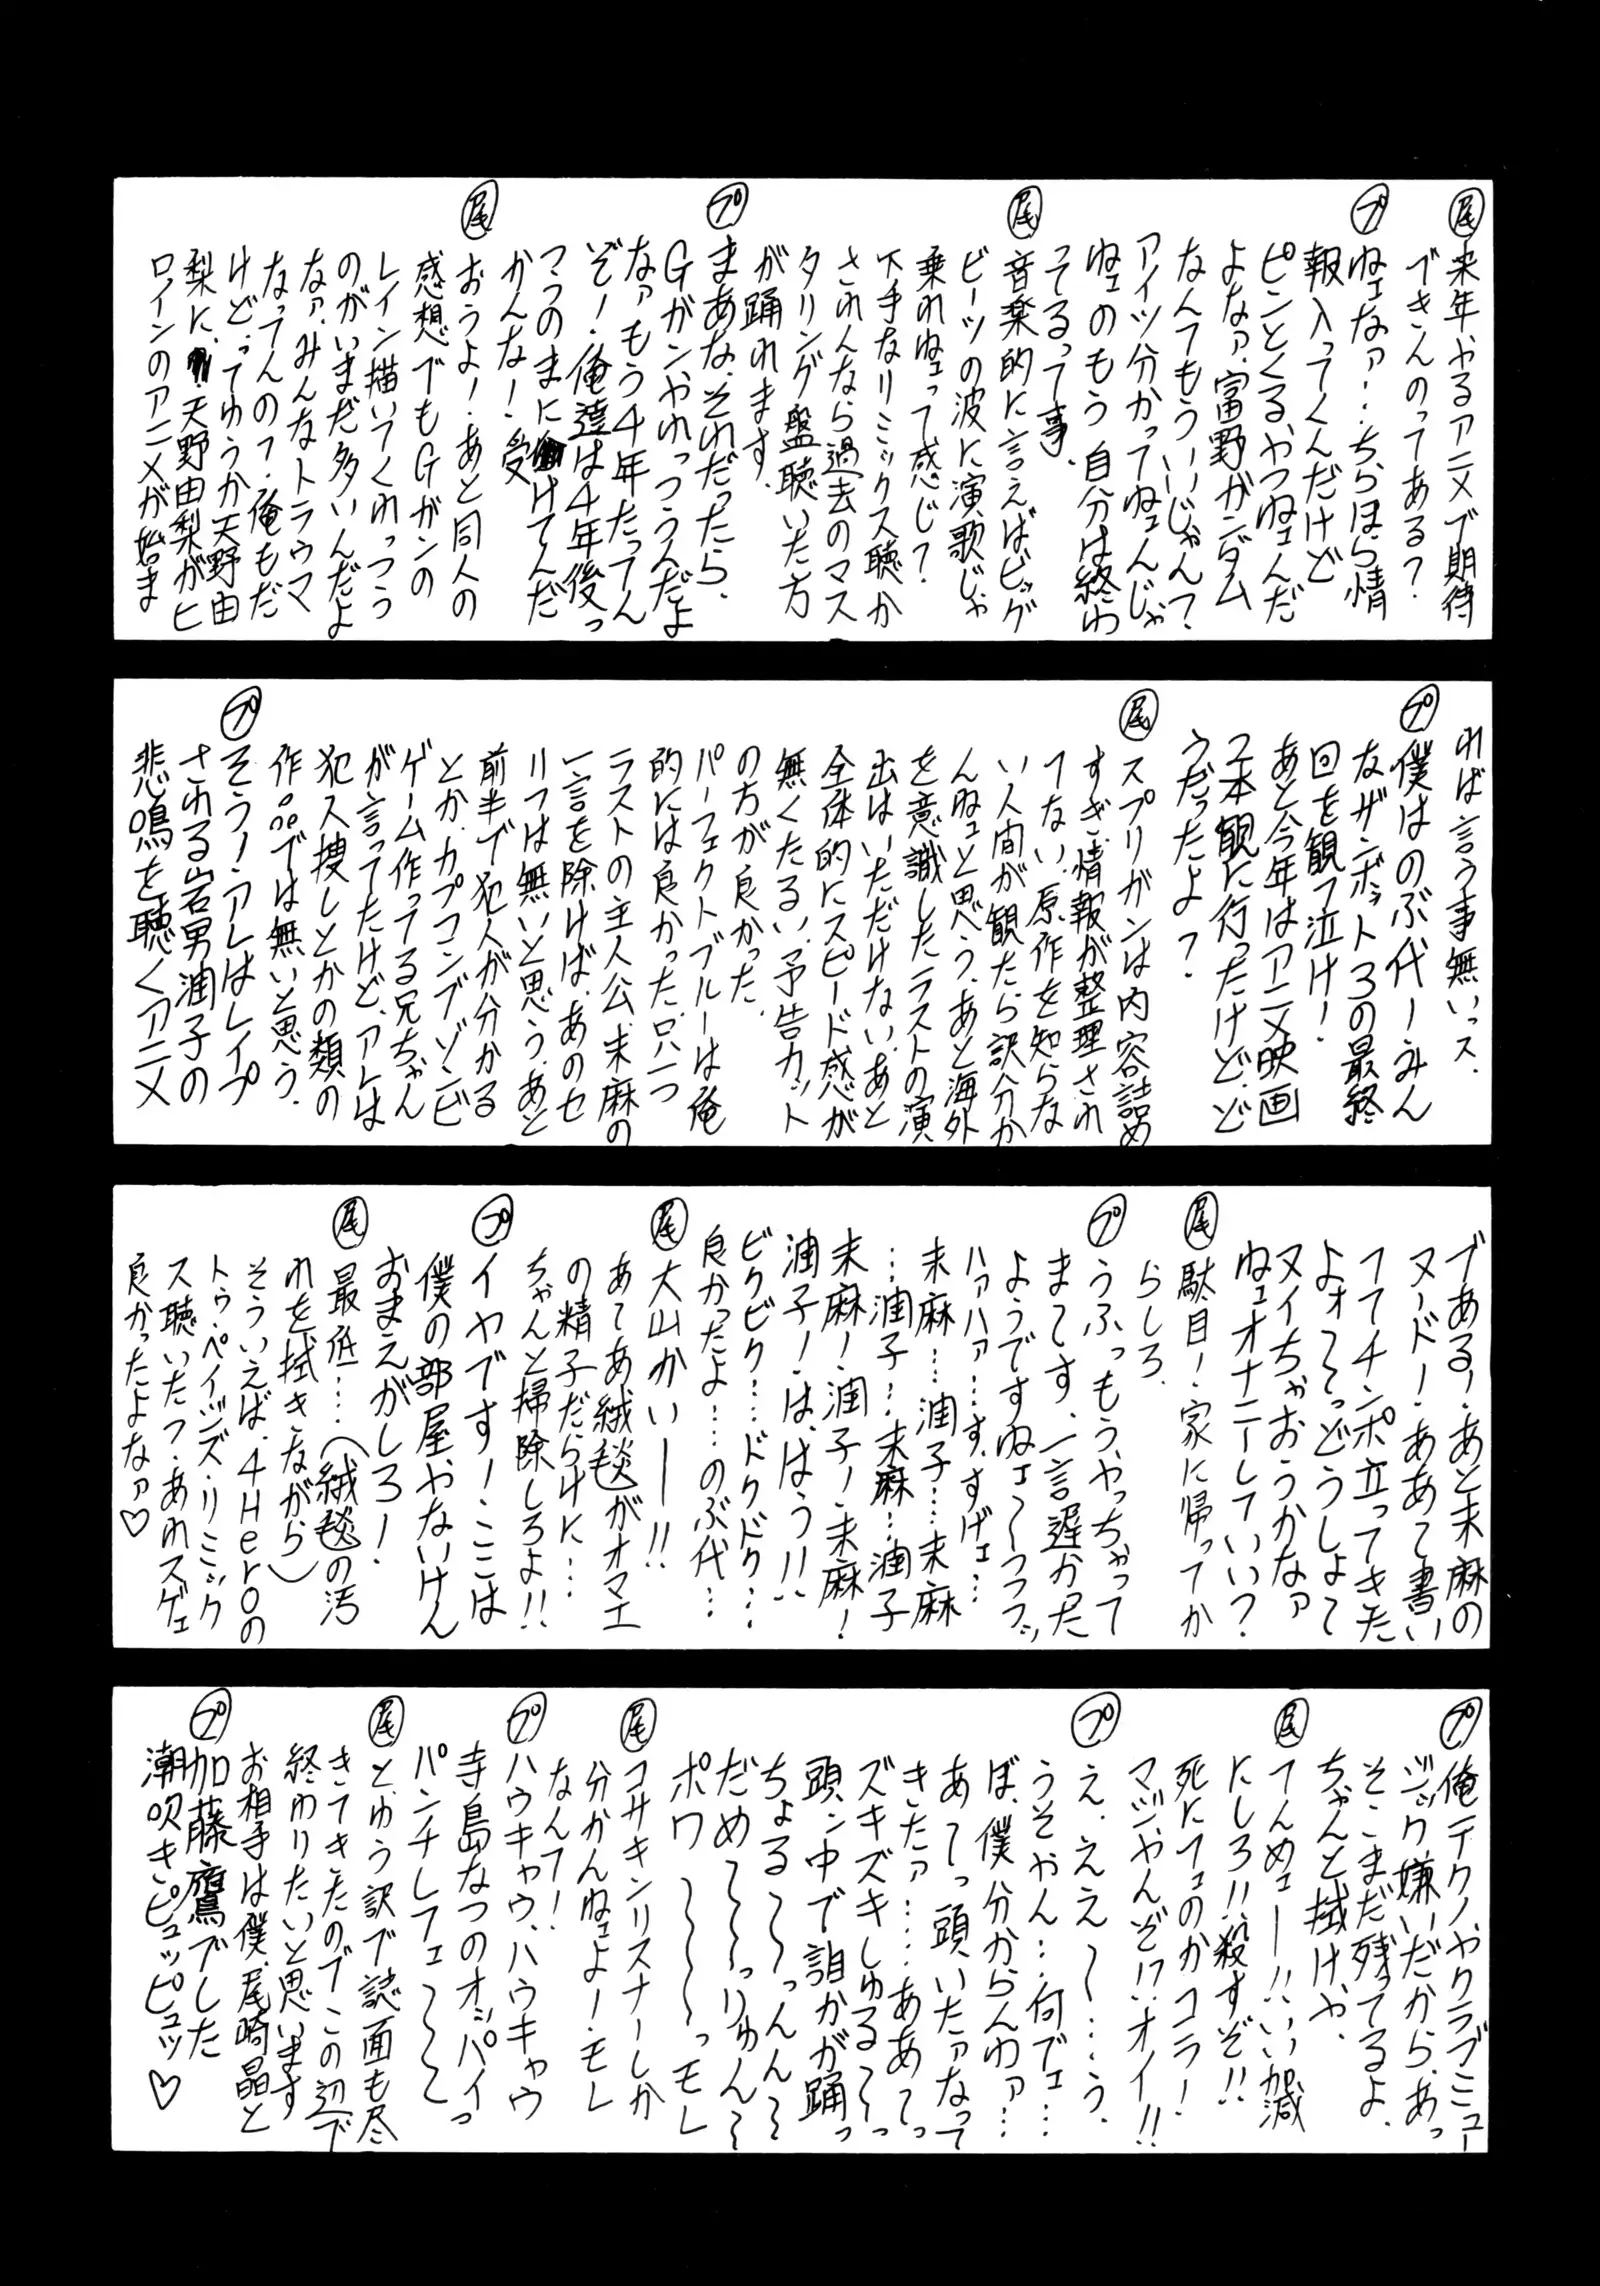 尾 来年やるアニメで期待
できんのってある?
プ ねェなァ!…ちらほら情
報入ってくんだけど
ピンとくるやつねェんだ
よなァ、富野がンダム
なんてもういいじゃんて?
アイツ分かってねェんじゃ
ねェのもう自分は終わ
ってるって事、
尾 音楽的に言えばビッグ
ビーツの波に演歌じゃ
乗れねェって感じ?
下手なリミックス聴か
されんなら過去のマス
タリング盤聴いた方
が踊れます。
プ まあな、それだったら、
Gガンやれっつうんだよ
なァもう4年たってん
ぞ!俺達は4年後っ
つうのまに受けてんだ
かんな!
尾 おうよ!あと同人の
感想でもGガンの
レイン描いてくれっつう
のがいまだ多いんだよ
なァ、みんなトラウマ
なってんの?俺もだ
けど、ってゆうか天野由
梨に、天野由梨がヒ
ロインのアニメが始ま
れば言う事無いっス、
プ 僕はのぶ代ーみん
なザンボット3の最終
回を観て泣け!
あと今年はアニメ映画
2本観に行ったけど、ど
うだったよ?
尾 スプリガンは内容詰め
すぎ、情報が整理され
てない、原作を知らな
い人間が観たら訳分か
んねェと思う、あと海外
を意識したラストの演
出はいただけない、あと
全体的にスピード感が
無くたるい、予告カット
の方が良かった、
パーフェクトブルーは俺
的には良かった、只一つ
ラストの主人公未麻の
一言を除けば、あのセ
リフは無いと思う、あと
前半で犯人が分かる
とか、カプコンでゾンビ
ゲーム作ってる兄ちゃん
が言ってたけど、アレは
犯人捜しとかの類の
作品では無いと思う、
プ そう!アレはレイプ
される岩男潤子の
悲鳴を聴くアニメ
である!あと未麻の
ヌード!ああて書い
ててチンポ立ってきた
よォ〜〜っどうしよて
ヌイちゃおうかなァ
ねェオナニーしていい?
尾 駄目!家に帰ってか
らしろ、
プ うふっもう、やっちゃって
まてす、一言遅かった
ようですねェ〜〜フフッ
ハァハァ…す、すげェ…
未麻…潤子…未麻
…潤子…未麻…潤子
未麻!潤子!未麻!
潤子!は、はう!!
ビクビク…ドクドク…
良かったよ…のぶ代…
尾 大山かいー!!
あてあ絨毯がオマエ
の精子だらけに…
ちゃんと掃除しろよ!!
プ イヤです!ここは
僕の部屋やないけん
おまえがしろ!
尾 最低…(絨毯の汚
れを拭きながら)
そういえば、4Heroの
トゥ・ペイジズ・リミック
ス聴いた?あれスゲェ
良かったよなァ♡
プ 俺テクノやクラブミュー
ジック嫌いだから、あっ
そこまだ残ってるよ、
ちゃんと拭けや、
尾 てんめェー!!いい加減
にしろ!!殺すぞ!!
死にてェのかコラ!
マジやんぞ!?オイ!!
プ え、ええ〜…う、
うそやん…何でェ…
ぼ、僕分からんわァ…
あ〜っ頭いたァなって
きたァ……ああ〜っ
ズキズキしゅる〜〜っ
頭ン中で誰かが踊っ
ちょる〜〜っんん〜
だめ〜〜〜っりゅん〜
ポワ〜〜〜〜っモレ
尾 コサキンリスナーしか
分かんねェよ!モレ
なんて!
プ ハウキャウ、ハウキャウ
寺島なつのオッパイっ
パンチしてェ〜〜〜
尾 とゆう訳で誌面も尽
きてきたのでこの辺で
終わりたいと思います
お相手は僕、尾崎晶と
プ 加藤鷹でした
潮吹きピュッピュッ♡